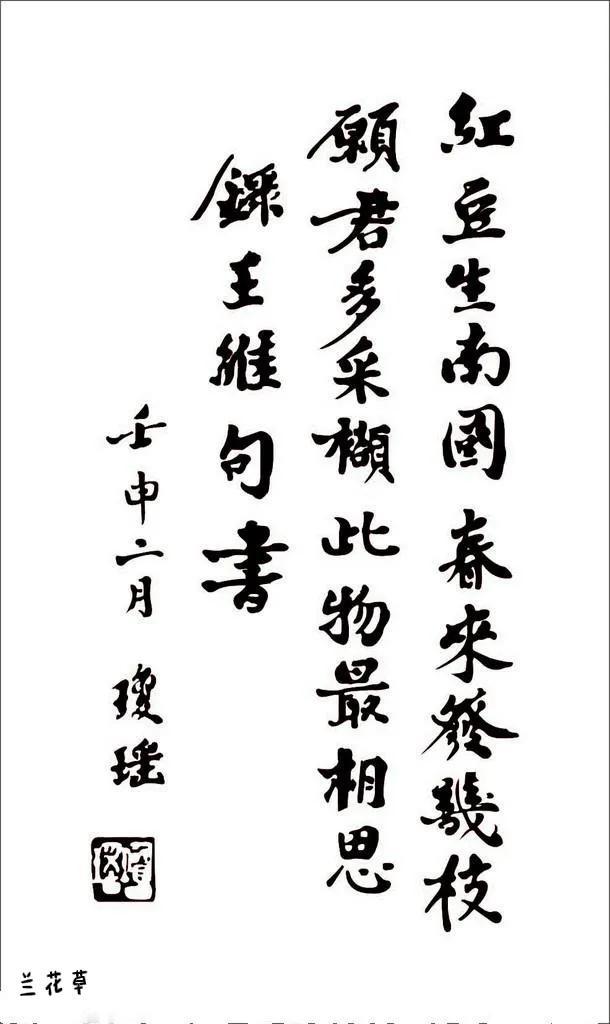 紅豆生南國春來發幾枝
願君多采擷此物最相思
錄王維句書
壬申二月 瓊瑤
兰花草